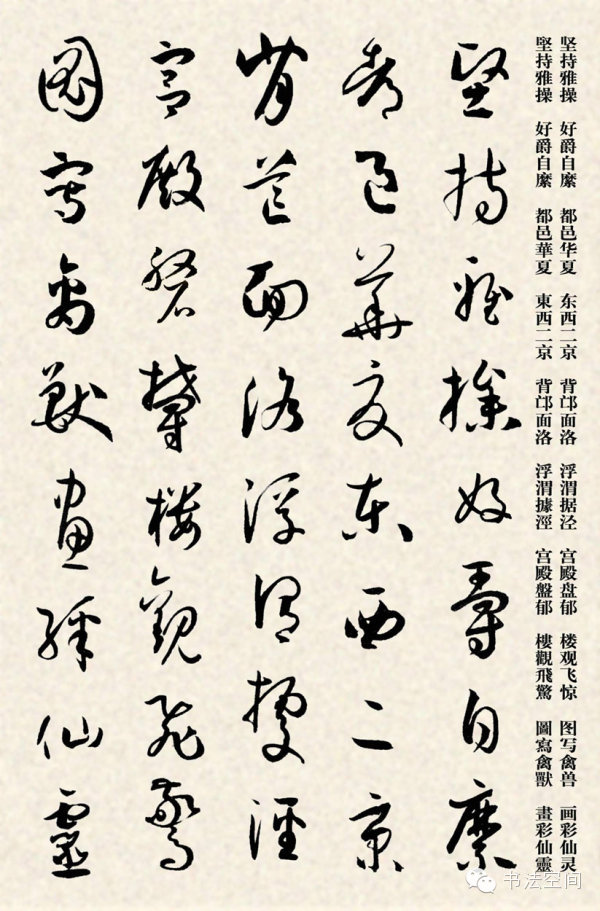 坚持雅操 好爵自縻 都邑华夏 东西二京 背邙面洛 浮渭据泾 宫殿盘郁 楼观飞惊 图写禽兽 画彩仙灵
堅持雅操 好爵自縻 都邑華夏 東西二京 背邙面洛 浮渭據涇 宮殿盤郁 樓觀飛驚 圖寫禽獸 畫彩仙靈
堅持雅操好爵自縻
都邑華夏東西二京
背邙面洛浮渭據涇
宮殿盤鬱樓觀飛驚
圖寫禽獸畫綵仙靈
书法空间